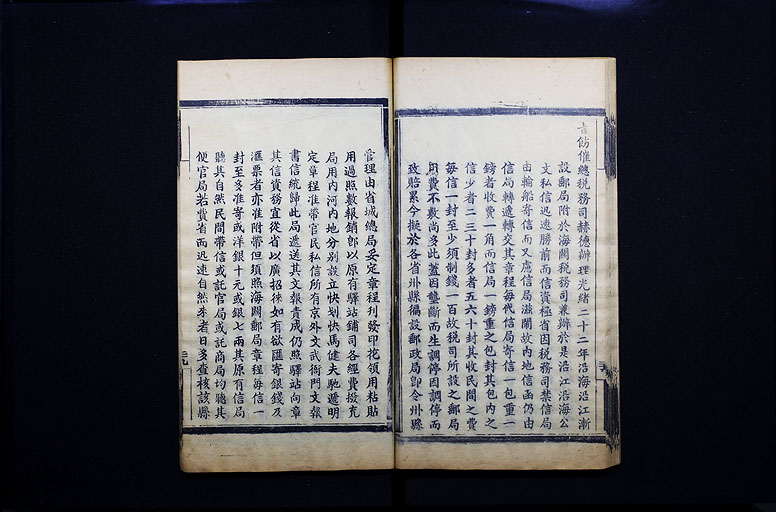 旨飭催總稅務司赫德辦理光緒二十二年沿海沿江漸
設郵局附於海關稅務司兼辦於是沿江沿海公
文私信迅速勝前而信資極省因稅務司禁信局
由輪船寄信而又慮信局滋鬧故內地信函仍由
信局轉遞轉交其章程每代信局寄信一包重一
鎊者收費一角而信局一鎊重之包封其包內之
信少者二三十封多者五六十封其收民間之費
每信一封至少須制錢一百故稅司所設之郵局
用費不敷尚多此蓋因壟斷而生調停因調停而
致賠累今擬於各省州縣徧設郵政局即令州縣
管理由省城總局妥定章程刋發印花領用粘貼
用過照數報銷即以原有驛站鋪司各經費撥充
局用內河內地分別設立快划快馬健夫馳遞明
定章程准帶官民私信所有京外文武衙門文報
書信統歸此局遞送其文報責成仍照驛站向章
其信資務宜從省以廣招徠如有欲匯寄銀錢及
滙票者亦准附帶但須照海關郵局章程每信一
封至多准寄或洋銀十元或銀七兩其原有信局
聽其自然民間帶信或託官局或託商局均聽其
便官局若費省而迅速自然來者日多查核該縣